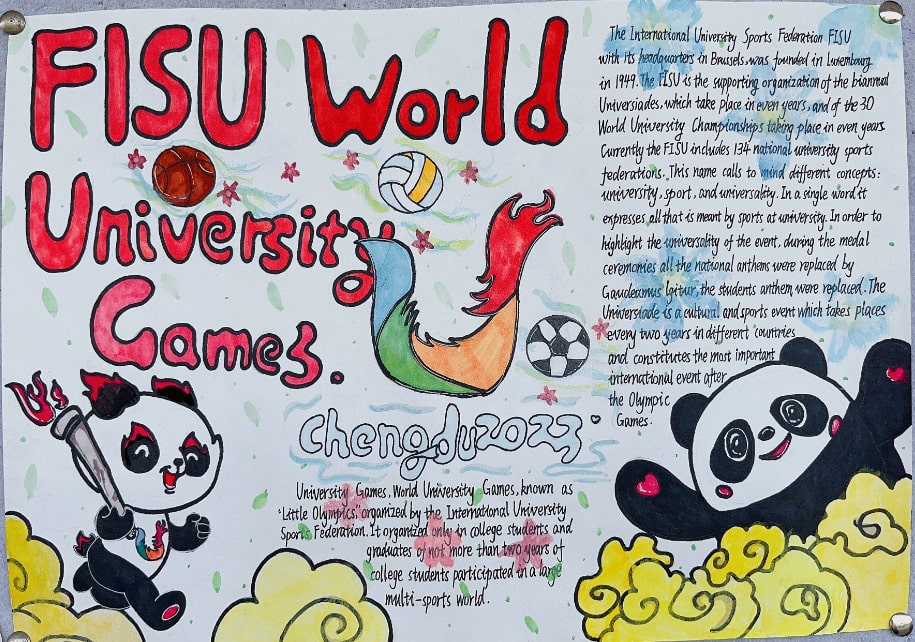 FISU World
University
Games.
Chengdu2023
The International University Sports Federation FISU
with its headquarters in Brussels, was founded in Luxembourg
in 1949. The FISU is the supporting organization of the biannual
Universiades, which take place in even years, and of the 30
World University Championships taking place in even years.
Currently the FISU includes 134 national university sports
federations. This name calls to mind different concepts:
university, sport, and universality. In a single word it
expresses all that is meant by sports at university. In order to
highlight the universality of the event, during the medal
ceremonies all the national anthems were replaced by
Gaudeamus Igitur, the students anthem were replaced. The
Universiade is a cultural and sports event which takes places
every two years in different countries
and constitutes the most important
international event after
the Olympic
Games.
University Games. World University Games, known as
"Little Olympics," organized by the International University
Sports Federation. It organized only in college students and
graduates of not more than two years of
college students participated in a large
multi-sports world.